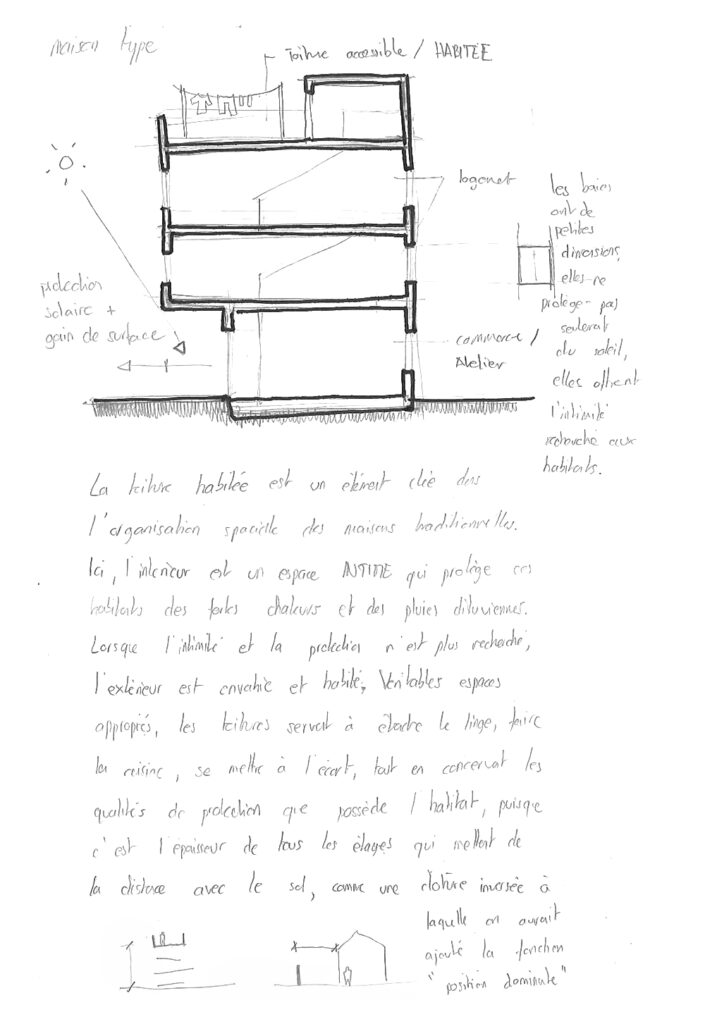 maison type
Toiture accessible / HABITÉE
logement
les baies
ont de
petites
dimensions,
elles ne
protège pas
seulement
du soleil,
elles offrent
l'intimité
recherché aux
habitants.
protection
solaire +
gain de surface
commerce /
Atelier
La toiture habitée est un élément clée dans
l'organisation spacielle des maisons traditionnelles.
Ici, l'interieur est un espace INTIME qui protège ces
habitants des fortes chaleurs et des pluies diluviennes.
Lorsque l'intimité et la protection n'est plus recherché,
l'extérieur est envahie et habité. Véritables espaces
appropriés, les toitures servent à étendre le linge, faire
la cuisine, se mettre à l'écart, tout en concervant les
qualités de protection que possède l'habitat, puisque
c'est l'épaisseur de tous les étages qui mettent de
la distance avec le sol, comme une clôture inversée à
laquelle on aurait
ajouté la fonction
"position dominante"